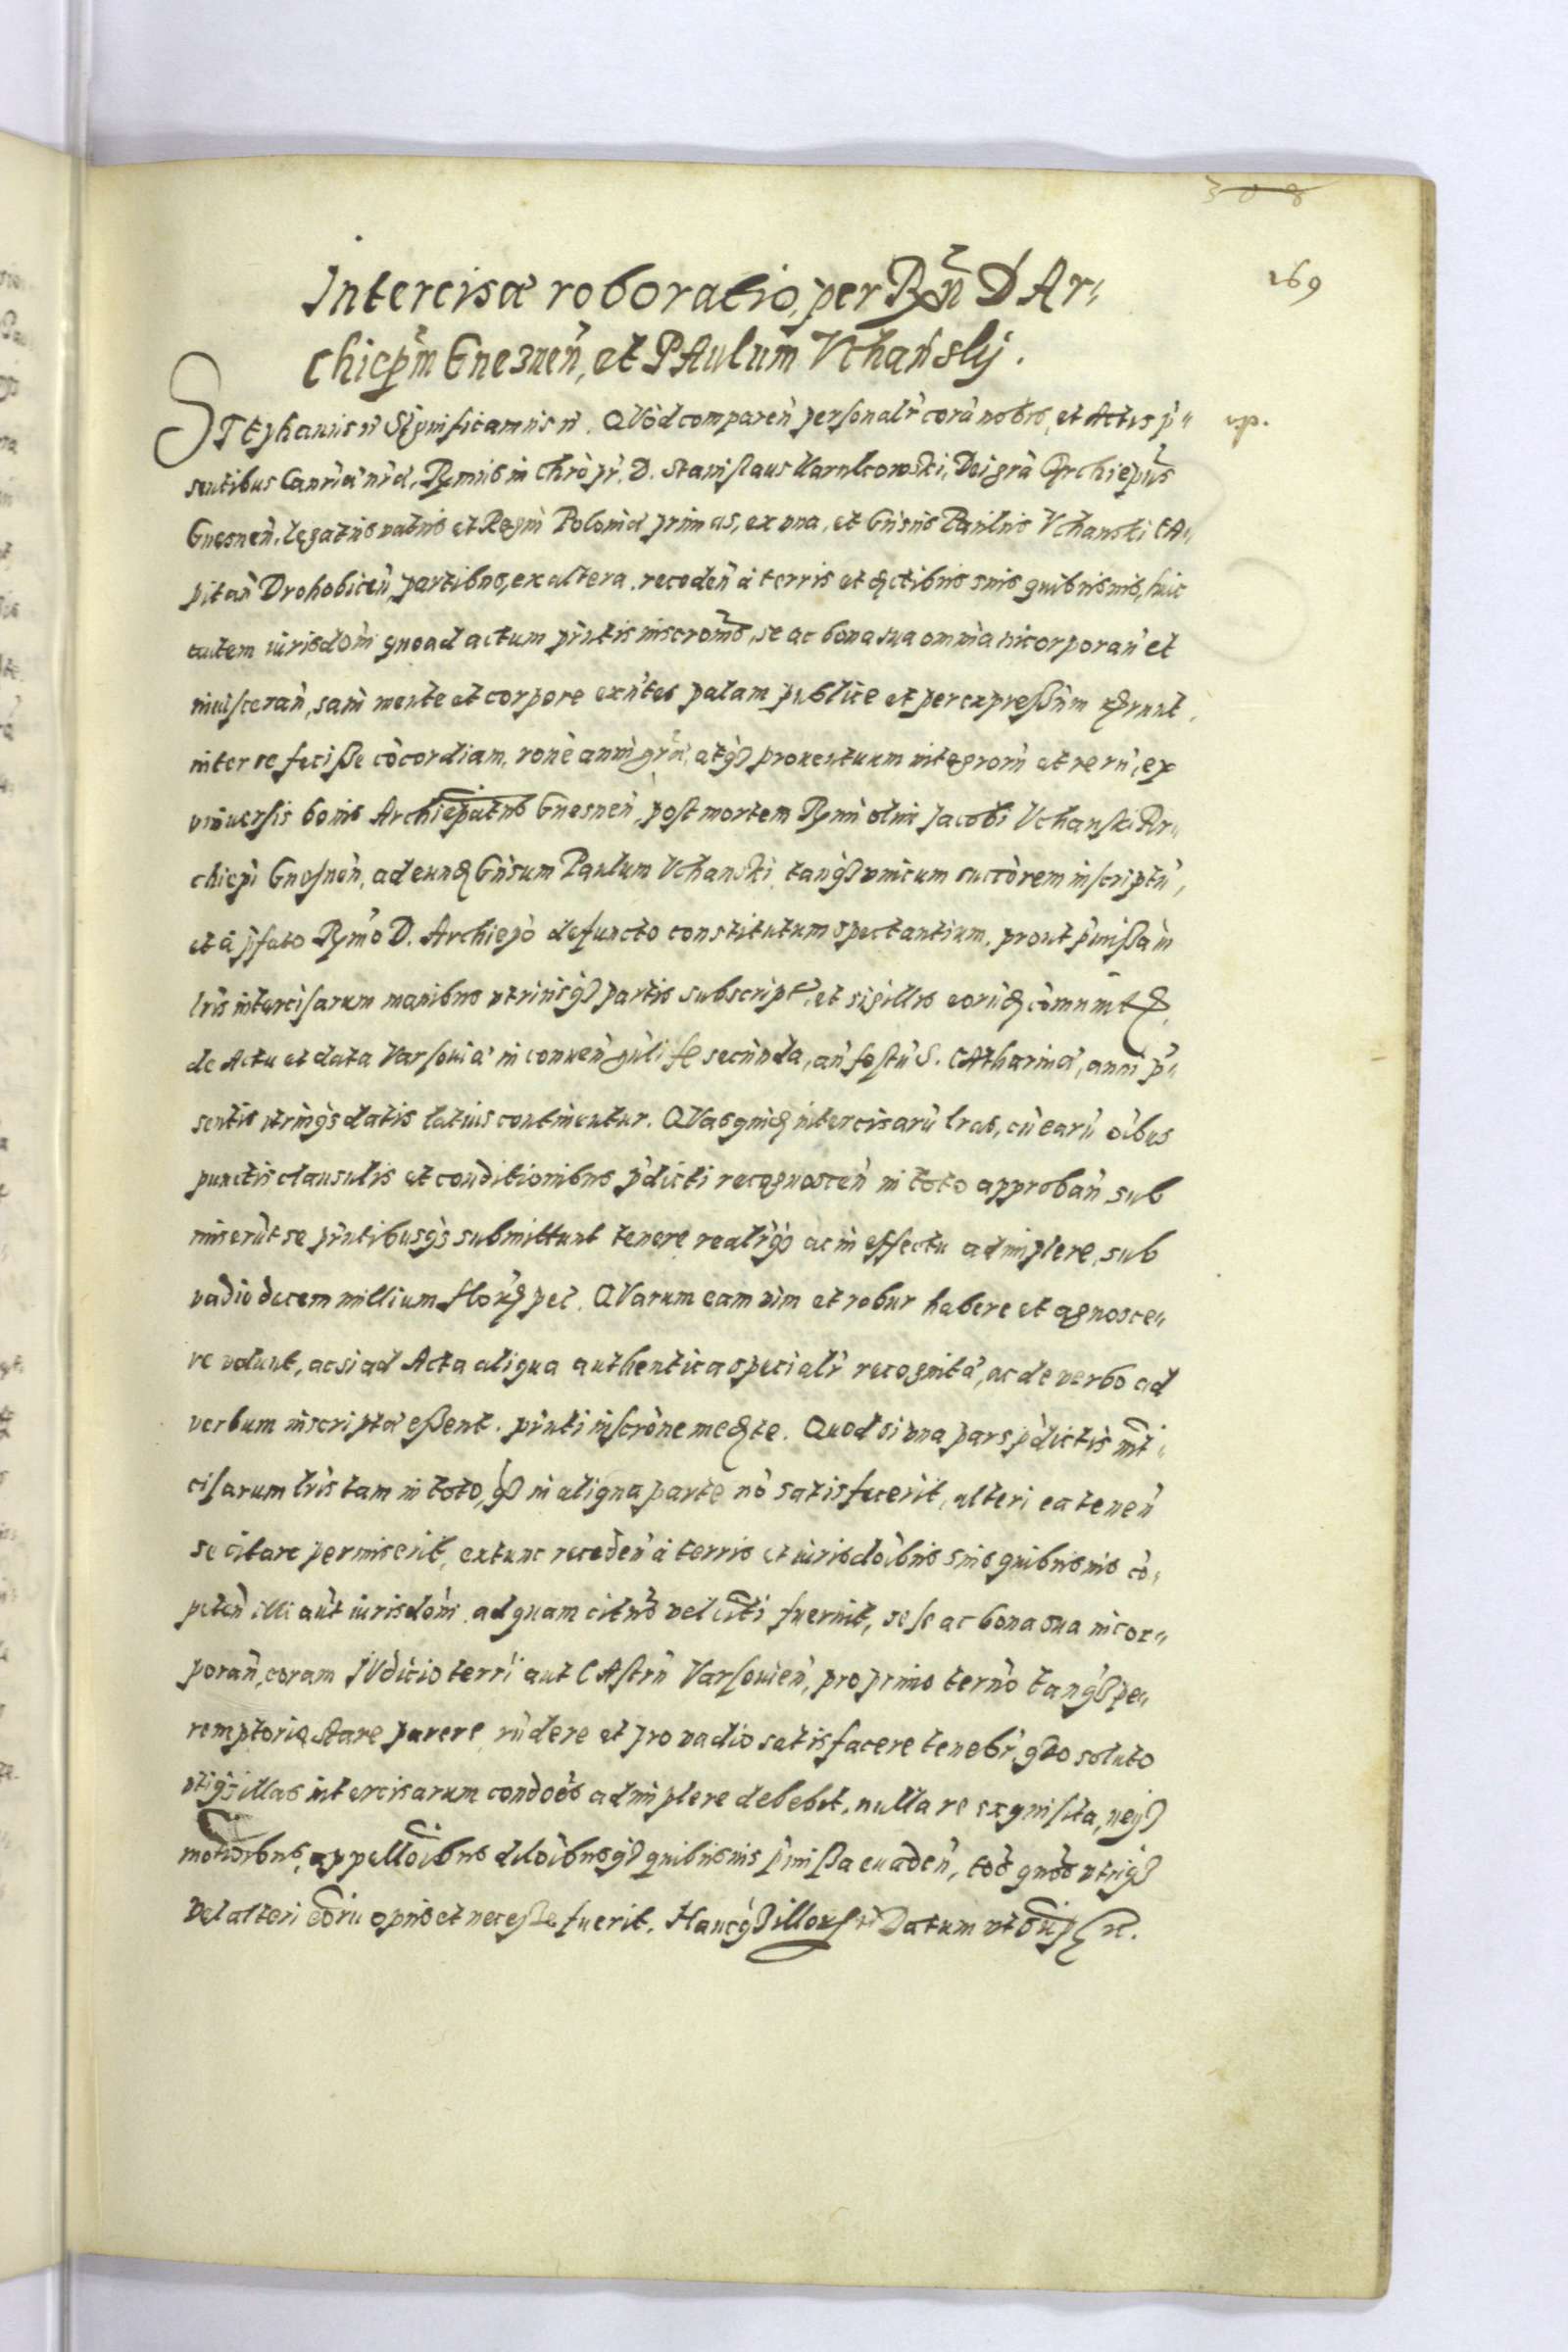 308
169
Intercisæ roboratio, per Rñ D Ar„
chieƥm Gneznen̄, et PAulum Vchańsky.
STEphanus ꝛc̄ Significamus ꝛc̄. QVod comparen̄ personalr̄ corā nobis, et Actis p̄„
vp.
sentibus Canr̄iæ nr̄æ, Rȳmus in Chrō pr̄. D. Stanislaus Karnkowski, Dei gr̄a Archiepūs
Gnesnen̄. legatus natus et Regni Poloniæ primas, ex vna, et Gn̄sus Paulus Vchanski CA„
pitan̄ Drohobicen̄, partibus, ex altera. receden̄ à terris et dctibus suis quibusuis, huic
autem iurisdōni quoad actum pn̄tis inscrōnis, se ac bona sua omnia incorporan̄ et
inuisceran̄, sani mente et corpore exn̄tes palam publice et per expressum
inter se fecisse cōcordiam, rōne anni græ, atq3 prouentuum integrorū et rerū, ex
vniuersis bonis Archiep̄atus Gnesnen̄, post mortem Rȳmi olim Jacobi Vchanski Ar„
chiep̄i Gnesnen̄, ad eund Gn̄sum Paulum Vchanski tanq3 vnicum succ̄orem inscriptū,
et à p̄fato Rȳmo D. Archiep̄o defuncto constitutum spectantium, prout p̄missa in
lr̄is intercisarum manibus vtriusq3 partis subscript̄, et sigillis eorūd cōmunit
de Actu et data Varsouiæ in conuen̄ gn̄li fe secunda, an̄ festū S. CAtharinæ, anni p̄„
sentis vtrinq3 datis latius continentur. QVas quid intercisarū lr̄as, cū earū oībus
punctis clausulis et conditionibus p̄dicti recognoscen̄ in toto approban̄ sub
miserūt se pn̄tibusq3 submittunt tenere realr̄q3 ac in effectu adimplere, sub
vadio decem millium flor pol. QVarum eam vim et robur habere et agnosce„
re volunt, ac si ad Acta aliqua authentica specialr̄ recognitæ, ac de verbo ad
verbum inscriptæ essent. pn̄ti inscrōne medte. Quod si vna pars p̄dictis int̄„
cisarum lr̄is tam in toto, q3 in aliqua parte nō satisfecerit, alteri ea tenen̄
se citare permiserit, extunc receden̄ à terris et iurisdōibus suis quibusuis cō„
peten̄ illi aūt iurisdōni ad quam citus vel citi fuerint, sese ac bona sua incor„
poran̄, coram JVdicio terri aut CAstrn̄ Varsouien̄, pro primo tern̄o tanq3 pe„
remptorio, stare parere rn̄dere et pro vadio satisfacere tenebr̄, quo soluto
vtiq3 illas intercisarum condōes adimplere debebit, nulla re exquisita, neq3
motiōibus, appellōibus dilōibusq3 quibusuis p̄missa euaden̄, toō quōs vtriq3
vel alteri eorū opus et necesse fuerit. Haucq3 illor ꝛc̄ Datum vt supra ꝛc̄.